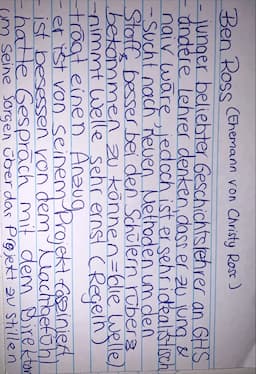 Ben Ross (Ehemann von Christy Ross)
- junger beliebter Geschichtslehrer an GHS
- andere Lehrer denken dass er zu jung &
naiv wäre, jedoch ist er sehr idealistisch
- Sucht nach neuen Methoden um den
Stoff besser bei den Schülern rüber zu
bekommen zu können = (die Welle)
- nimmt Welle sehr ernst (Regeln)
- trägt einen Anzug
- er ist von seinem Projekt fasziniert
- ist besessen von dem Machtgefühl
- hatte Gespräch mit dem Direktor
um seine Sorgen über das Projekt zu stillen